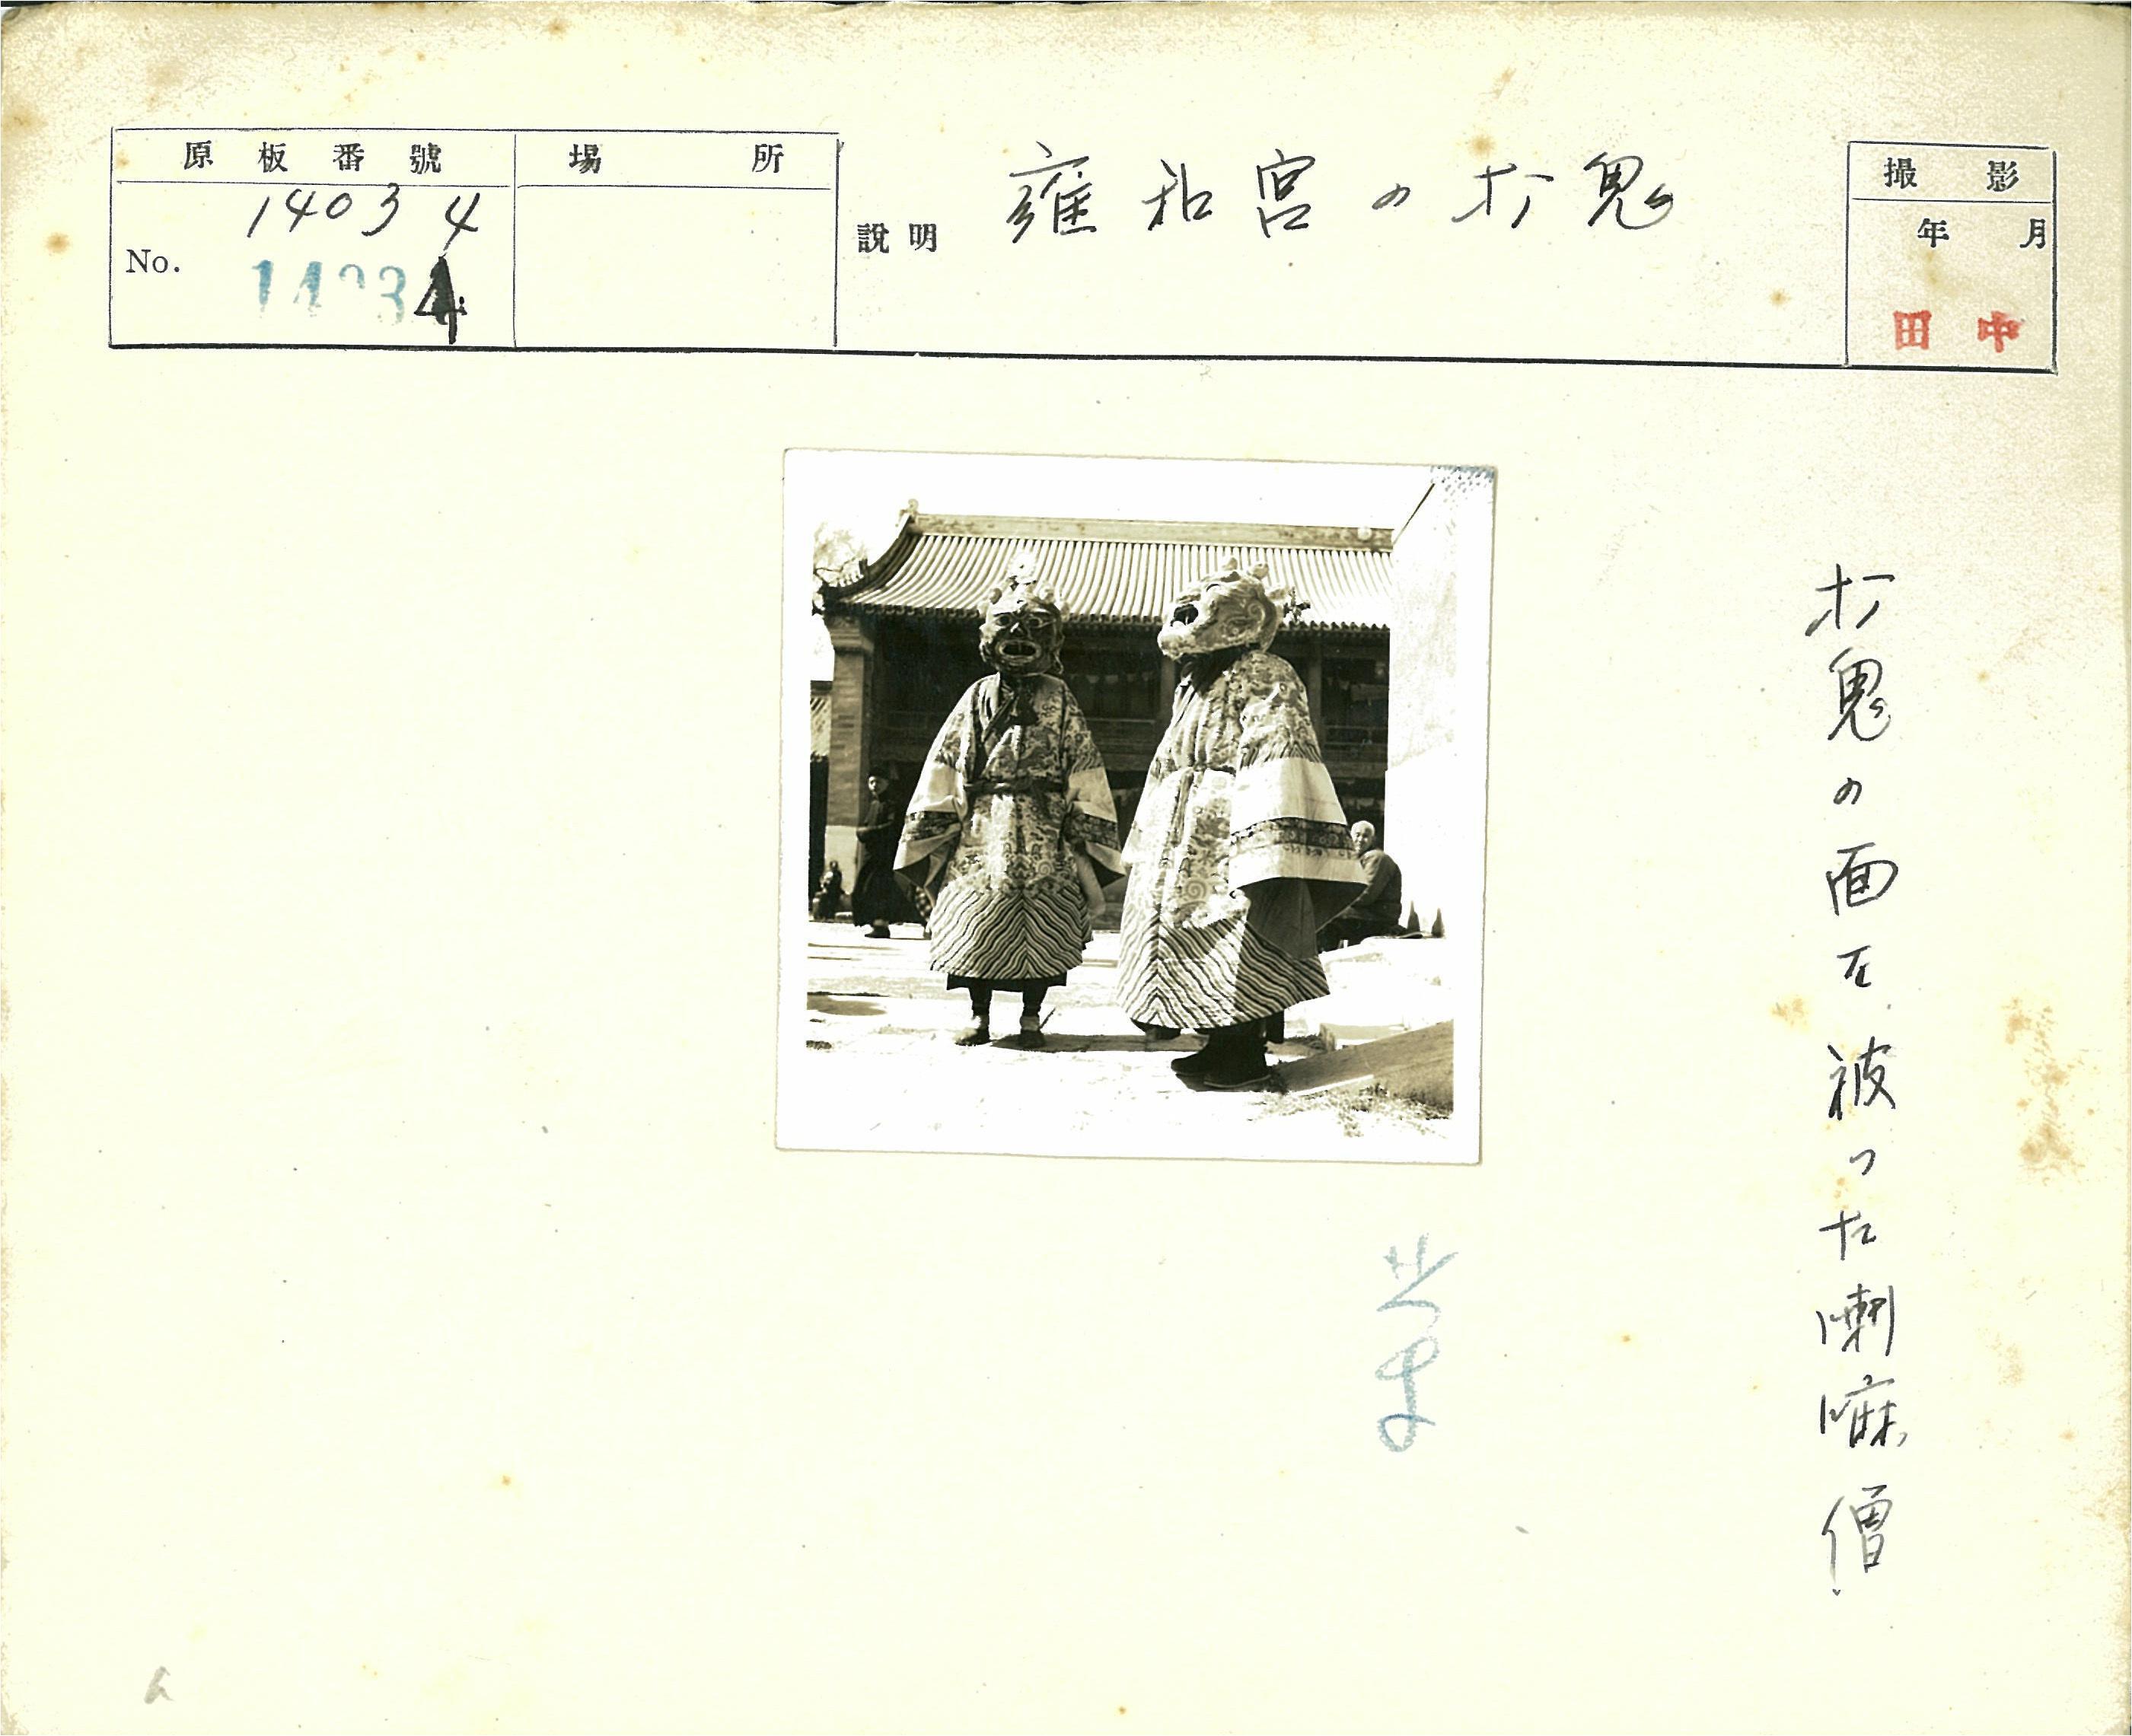 原板番號
場所
No.
14034
14034
說明
雍和宮の打鬼
撮影
年月
田中
打鬼の面を被つた喇嘛僧